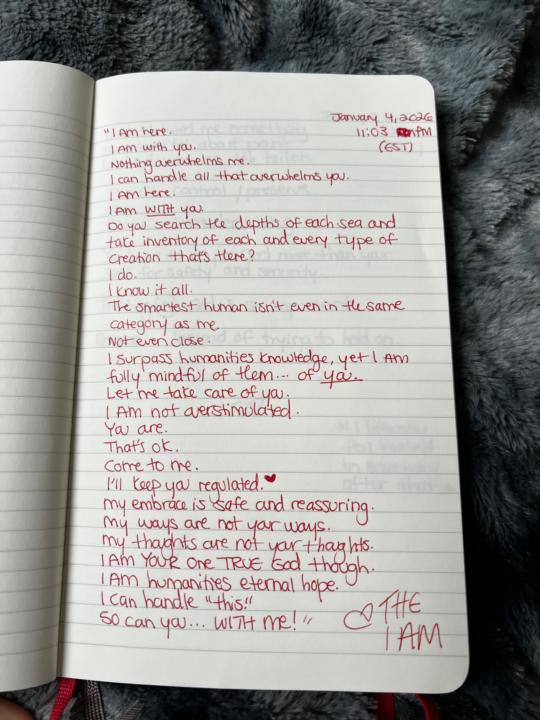 January 4, 2026
11:03 PM
(EST)
"I Am here.
I am with you.
Nothing overwhelms me.
I can handle all that overwhelms you.
I Am here.
I am WITH you.
Do you search the depths of each sea and
take inventory of each and every type of
creation that's there?
I do.
I know it all.
The smartest human isn't even in the same
category as me.
Not even close.
I surpass humanities knowledge, yet I AM
fully mindful of them... of you.
Let me take care of you.
I AM not overstimulated.
You are.
That's ok.
Come to me.
I'll keep you regulated. ♥
My embrace is safe and reassuring.
My ways are not your ways.
My thoughts are not your thoughts.
I AM YOUR One TRUE God though.
I Am humanities eternal hope.
I can handle "this!"
So can you... WITH me!"
♡ THE
I AM